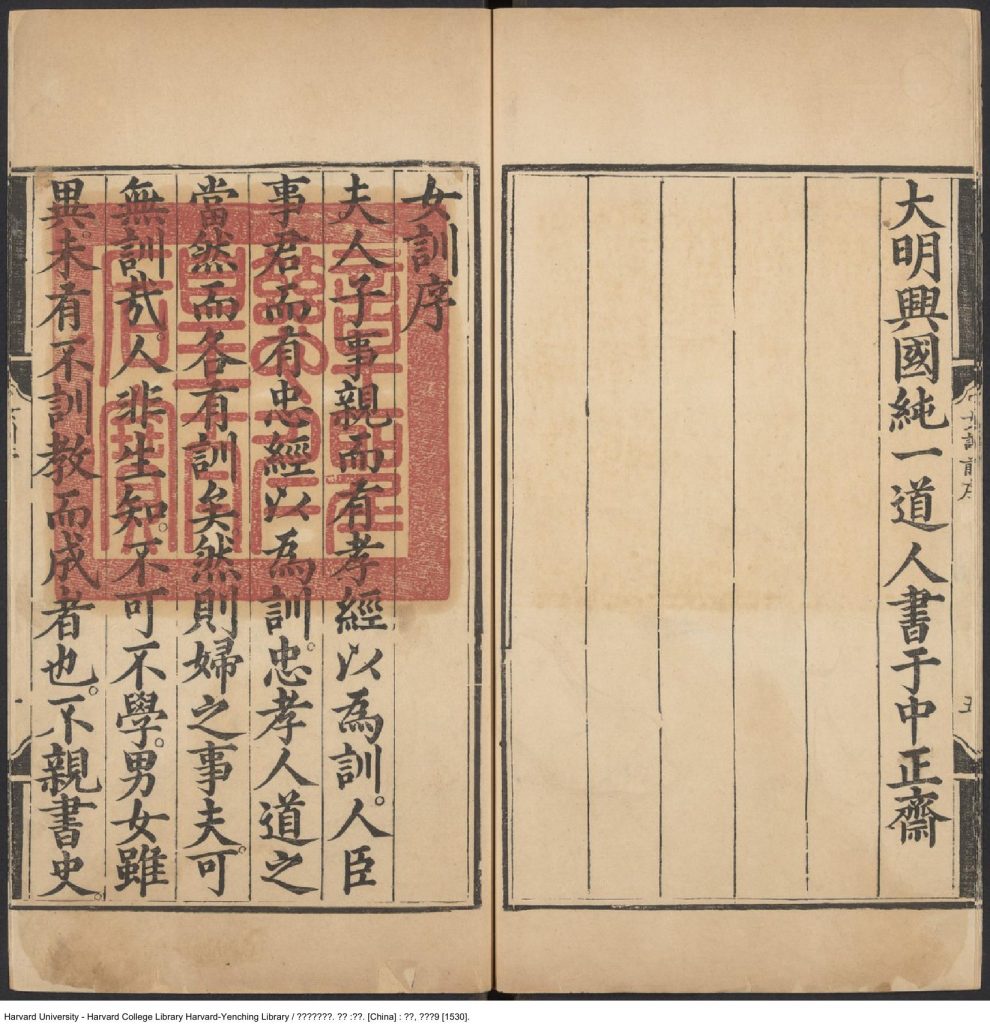 大明興國純一道人書于中正齋
女訓序
夫人子事親而有孝經以為訓。人臣
事君而有忠經以為訓。忠孝人道之
當然而各有訓矣然則婦之事夫。可
無訓㢤。人非生知。不可不學。男女雖
異。未有不訓教而成者也。不親書史。
Harvard University - Harvard College Library Harvard-Yenching Library / ???????. ?? :??. [China] : ??, ???9 [1530].